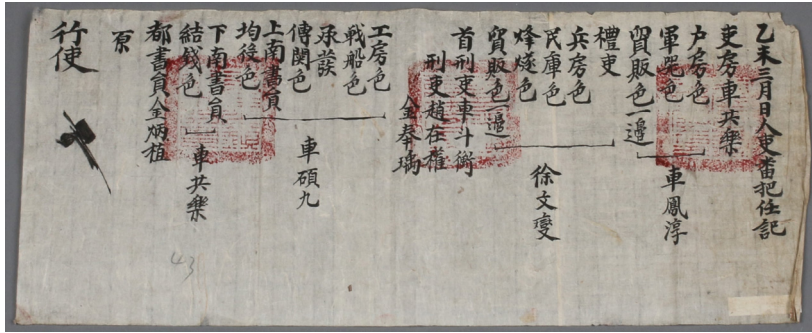 乙未三月日人吏畓把任記
吏房車共樂
戶房色
軍器色
貿販色一邊
車鳳淳
禮吏
兵房色
民庫色
烽燧色
貿販色一邊
徐文燮
首刑吏車斗衡
刑吏趙在權
金奉瑀
工房色
戰船色
承發
傳関色
上南書員
均役色
車碩九
下南書員
結錢色
車共樂
都書員金炳植
原
行使
43